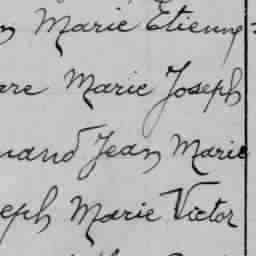 Marie Etienne
Marie Joseph
Jean Marie
Marie Victor